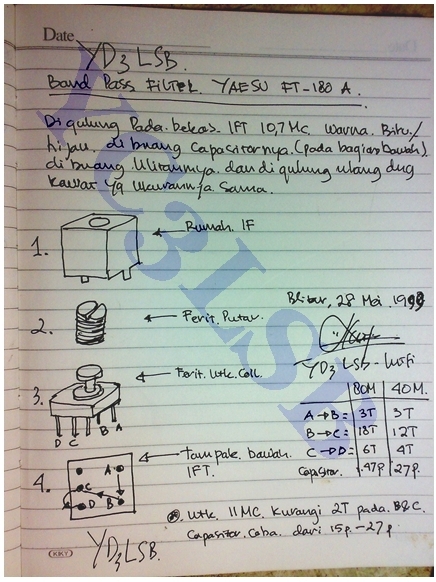 Date
YD3 LSB.
Band Pass FILTER YAESU FT-180 A.
Di gulung Pada bekas IFT 10,7 Mc. Warna Biru/
hijau, di buang Capasitornya (pada bagian bawah)
di buang lilitannya dan di gulung ulang dng
Kawat yg ukurannya Sama.
1.
Rumah IF
2.
Ferit Putar.
Blitar, 28 Mei 1999
YD3 LSB - Lutfi
3.
Ferit Utk. Coil.
D C B A
80M 40M.
A→B = 3T 3T
B→C = 18T 12T
C→D = 6T 4T
Capasitor. 47p 27p.
4.
A
C
D B
Tampak bawah
IFT.
Utk 11MC. Kurangi 2T pada B&C.
Capasitor Coba dari 15p - 27p
KKY
YD3 LSB.
YC3LSB